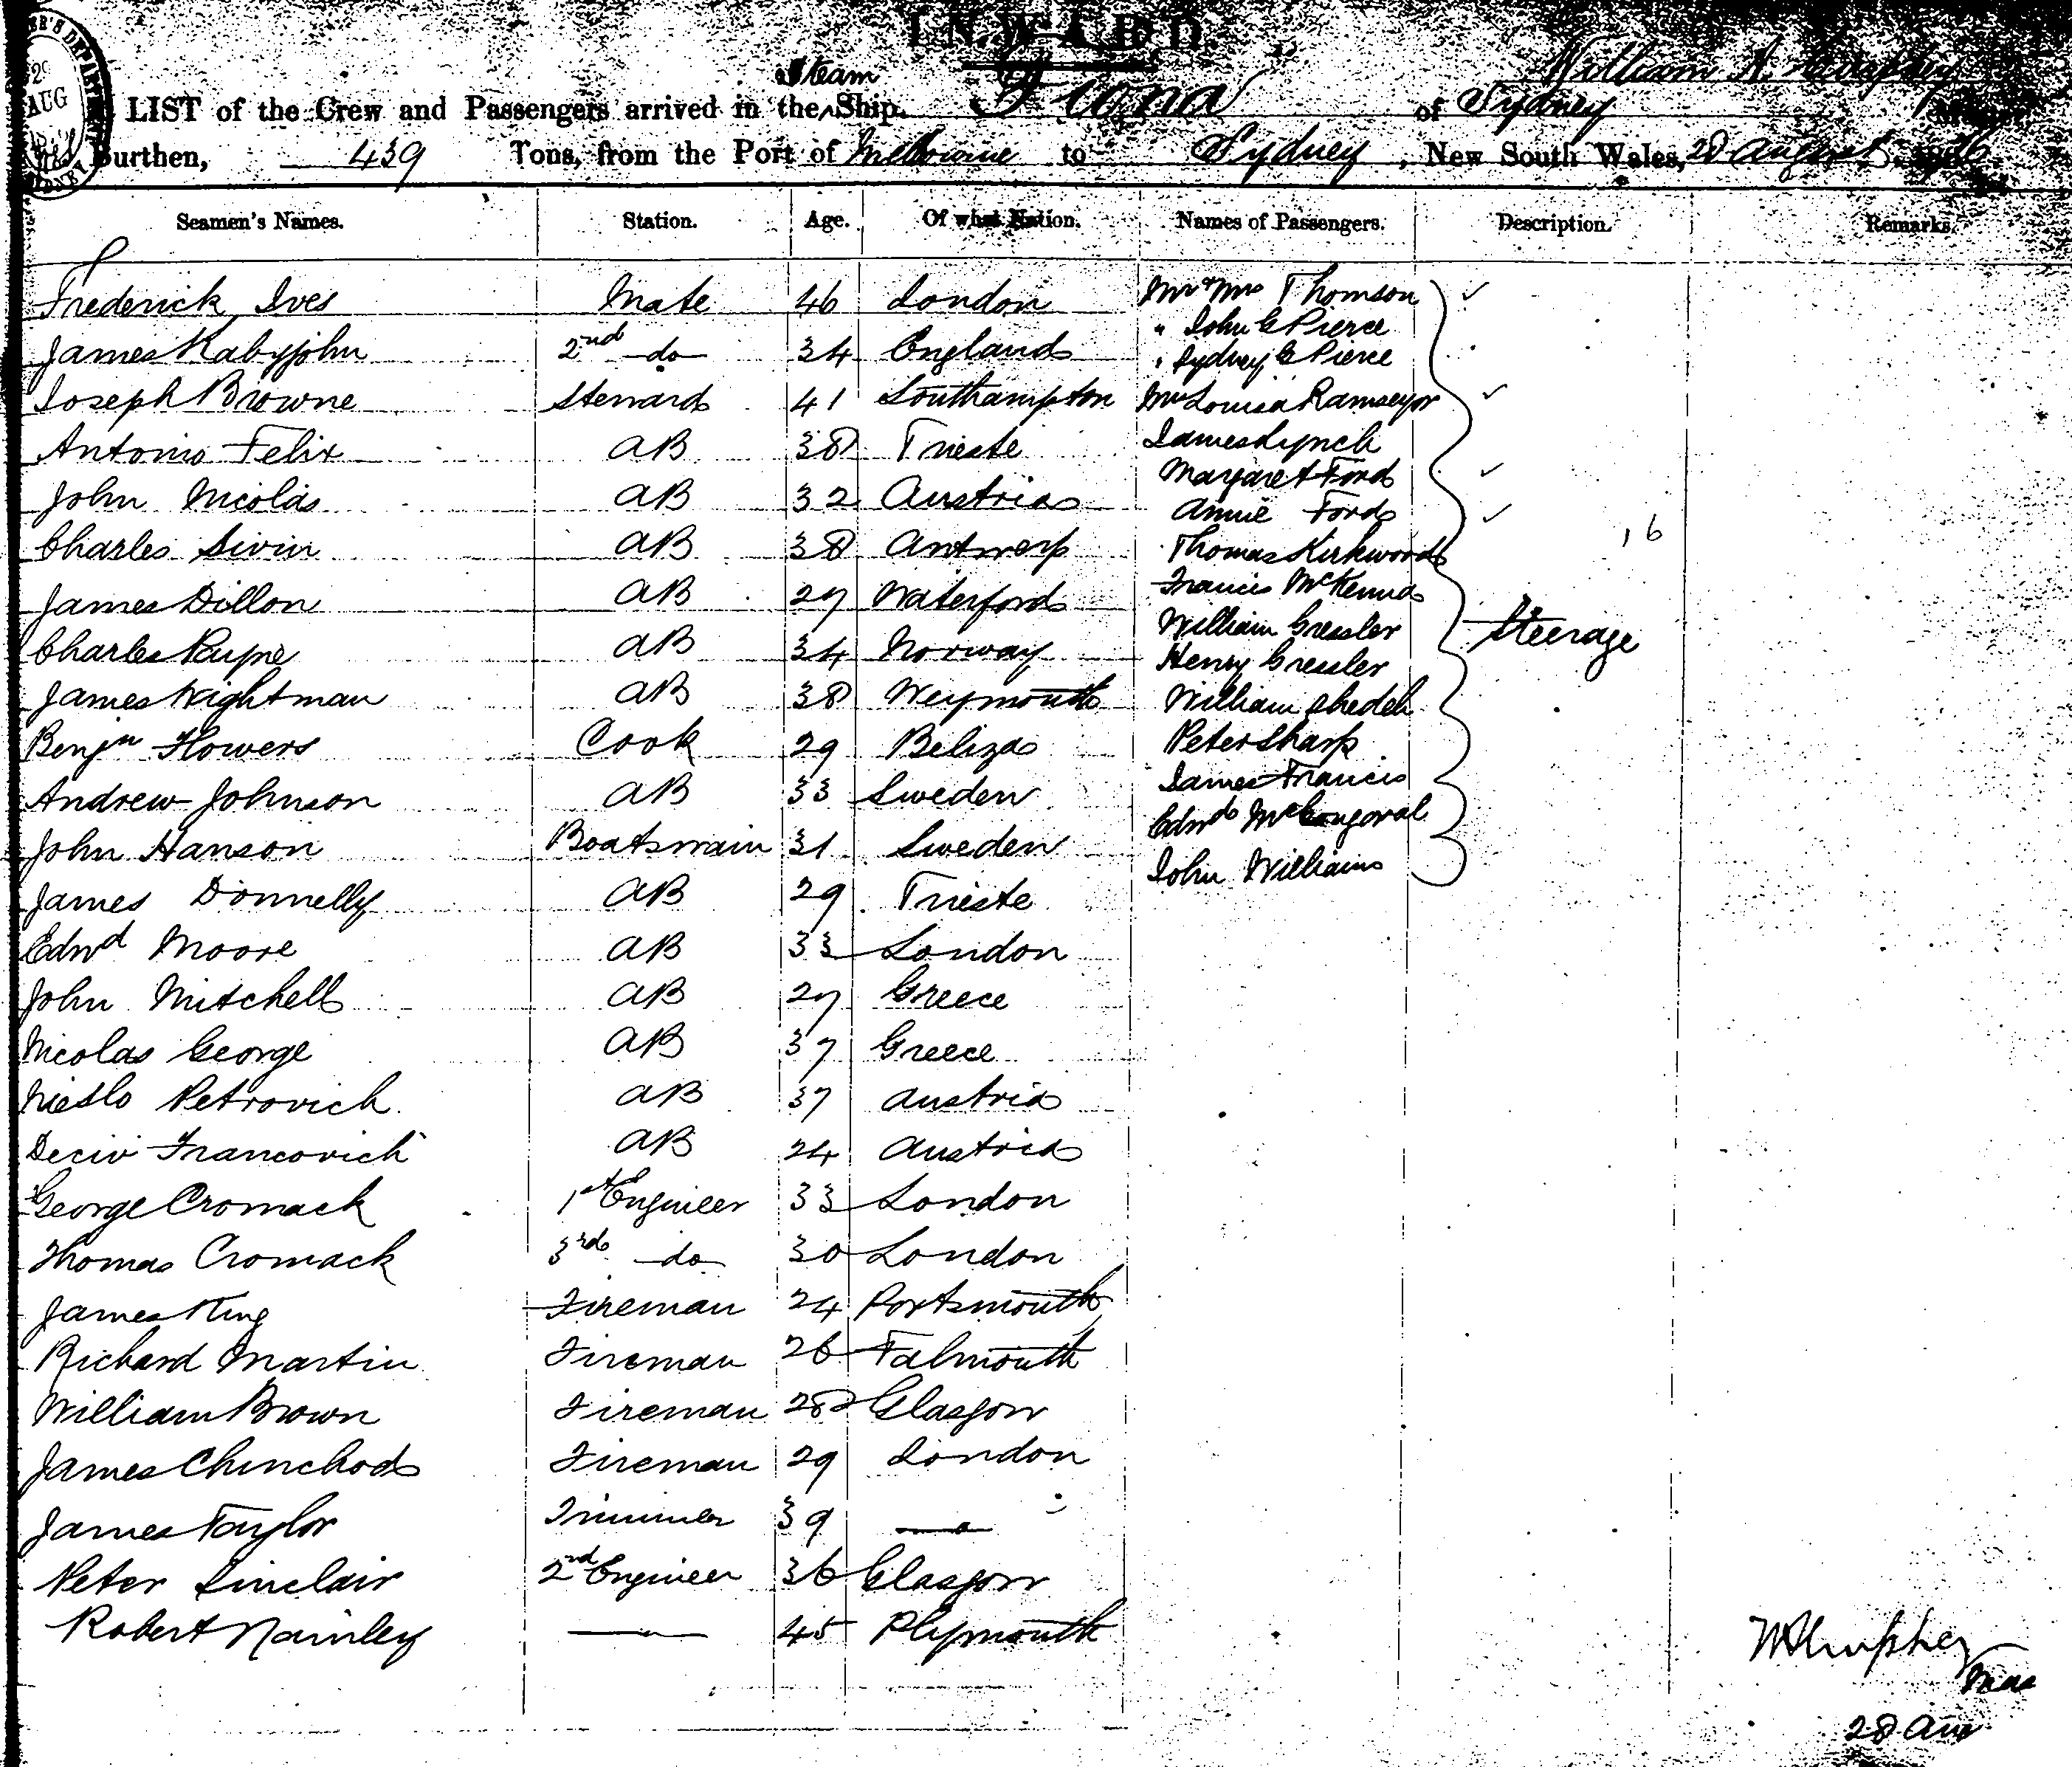 INWARD
Steam
William A.
LIST of the Crew and Passengers arrived in the Ship. "Fiona" of Sydney
Burthen, 439 Tons, from the Port of Melbourne to Sydney, New South Wales, 28 August
Seamen's Names. Station. Age. Of what Nation. Names of Passengers. Description. Remarks.
Frederick Ives Mate 46 London
James Rabyjohn 2nd do 34 England
Joseph Browne Steward 41 Southampton
Antonio Felix AB 38 Trieste
John Nicolas AB 32 Austria
Charles AB 38 Antwerp
James Dillon AB 27 Waterford
Charles AB 34 Norway
James Wightman AB 38 Weymouth
Benjn Flowers Cook 29 Beliza
Andrew Johnson AB 33 Sweden
John Hanson Boatswain 31 Sweden
James Donnelly AB 29 Trieste
Edwd Moore AB 33 London
John Mitchell AB 27 Greece
Nicolas George AB 37 Greece
Petrovich AB 37 Austria
Francovich AB 24 Austria
George Cromack 1st Engineer 33 London
Thomas Cromack 3rd do 30 London
James King Fireman 24 Portsmouth
Richard Martin Fireman 26 Falmouth
William Brown Fireman 28 Glasgow
James Chinchod Fireman 29 London
James Taylor Trimmer 39
Peter Sinclair 2nd Engineer 36 Glasgow
Robert Nainley 45 Plymouth
Mr & Mrs Thomson
" John G Pierce
" Sydney G Pierce
Mrs Louisa Ramseyor
James Lynch
Margaret Ford
Annie Ford
Thomas Kirkwood
Francis McKenna
William Gressler
Henry Gressler
William
Peter Sharp
James Francis
Edwd
John Williams
16
Steerage
28 Aug